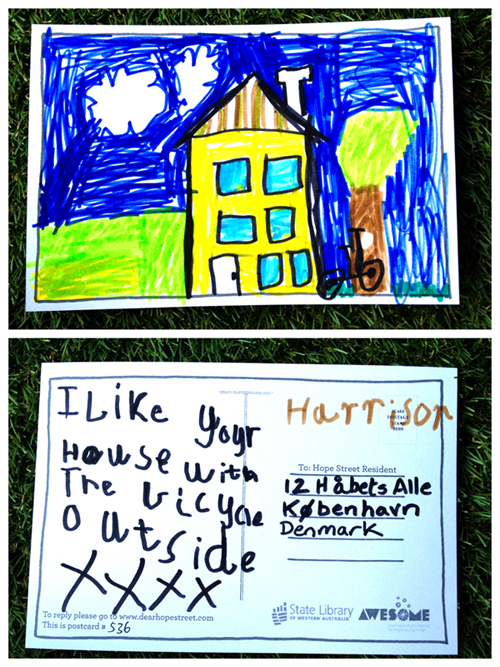 I Like your
House with
The bicycle
Outside
XXXX
To reply please go to www.dearhopestreet.com
This is postcard # 536
Harrison
PLACE
POSTAGE
STAMP
HERE
To: Hope Street Resident
12 Håbets Alle
København
Denmark
State Library
OF WESTERN AUSTRALIA
AWESOME